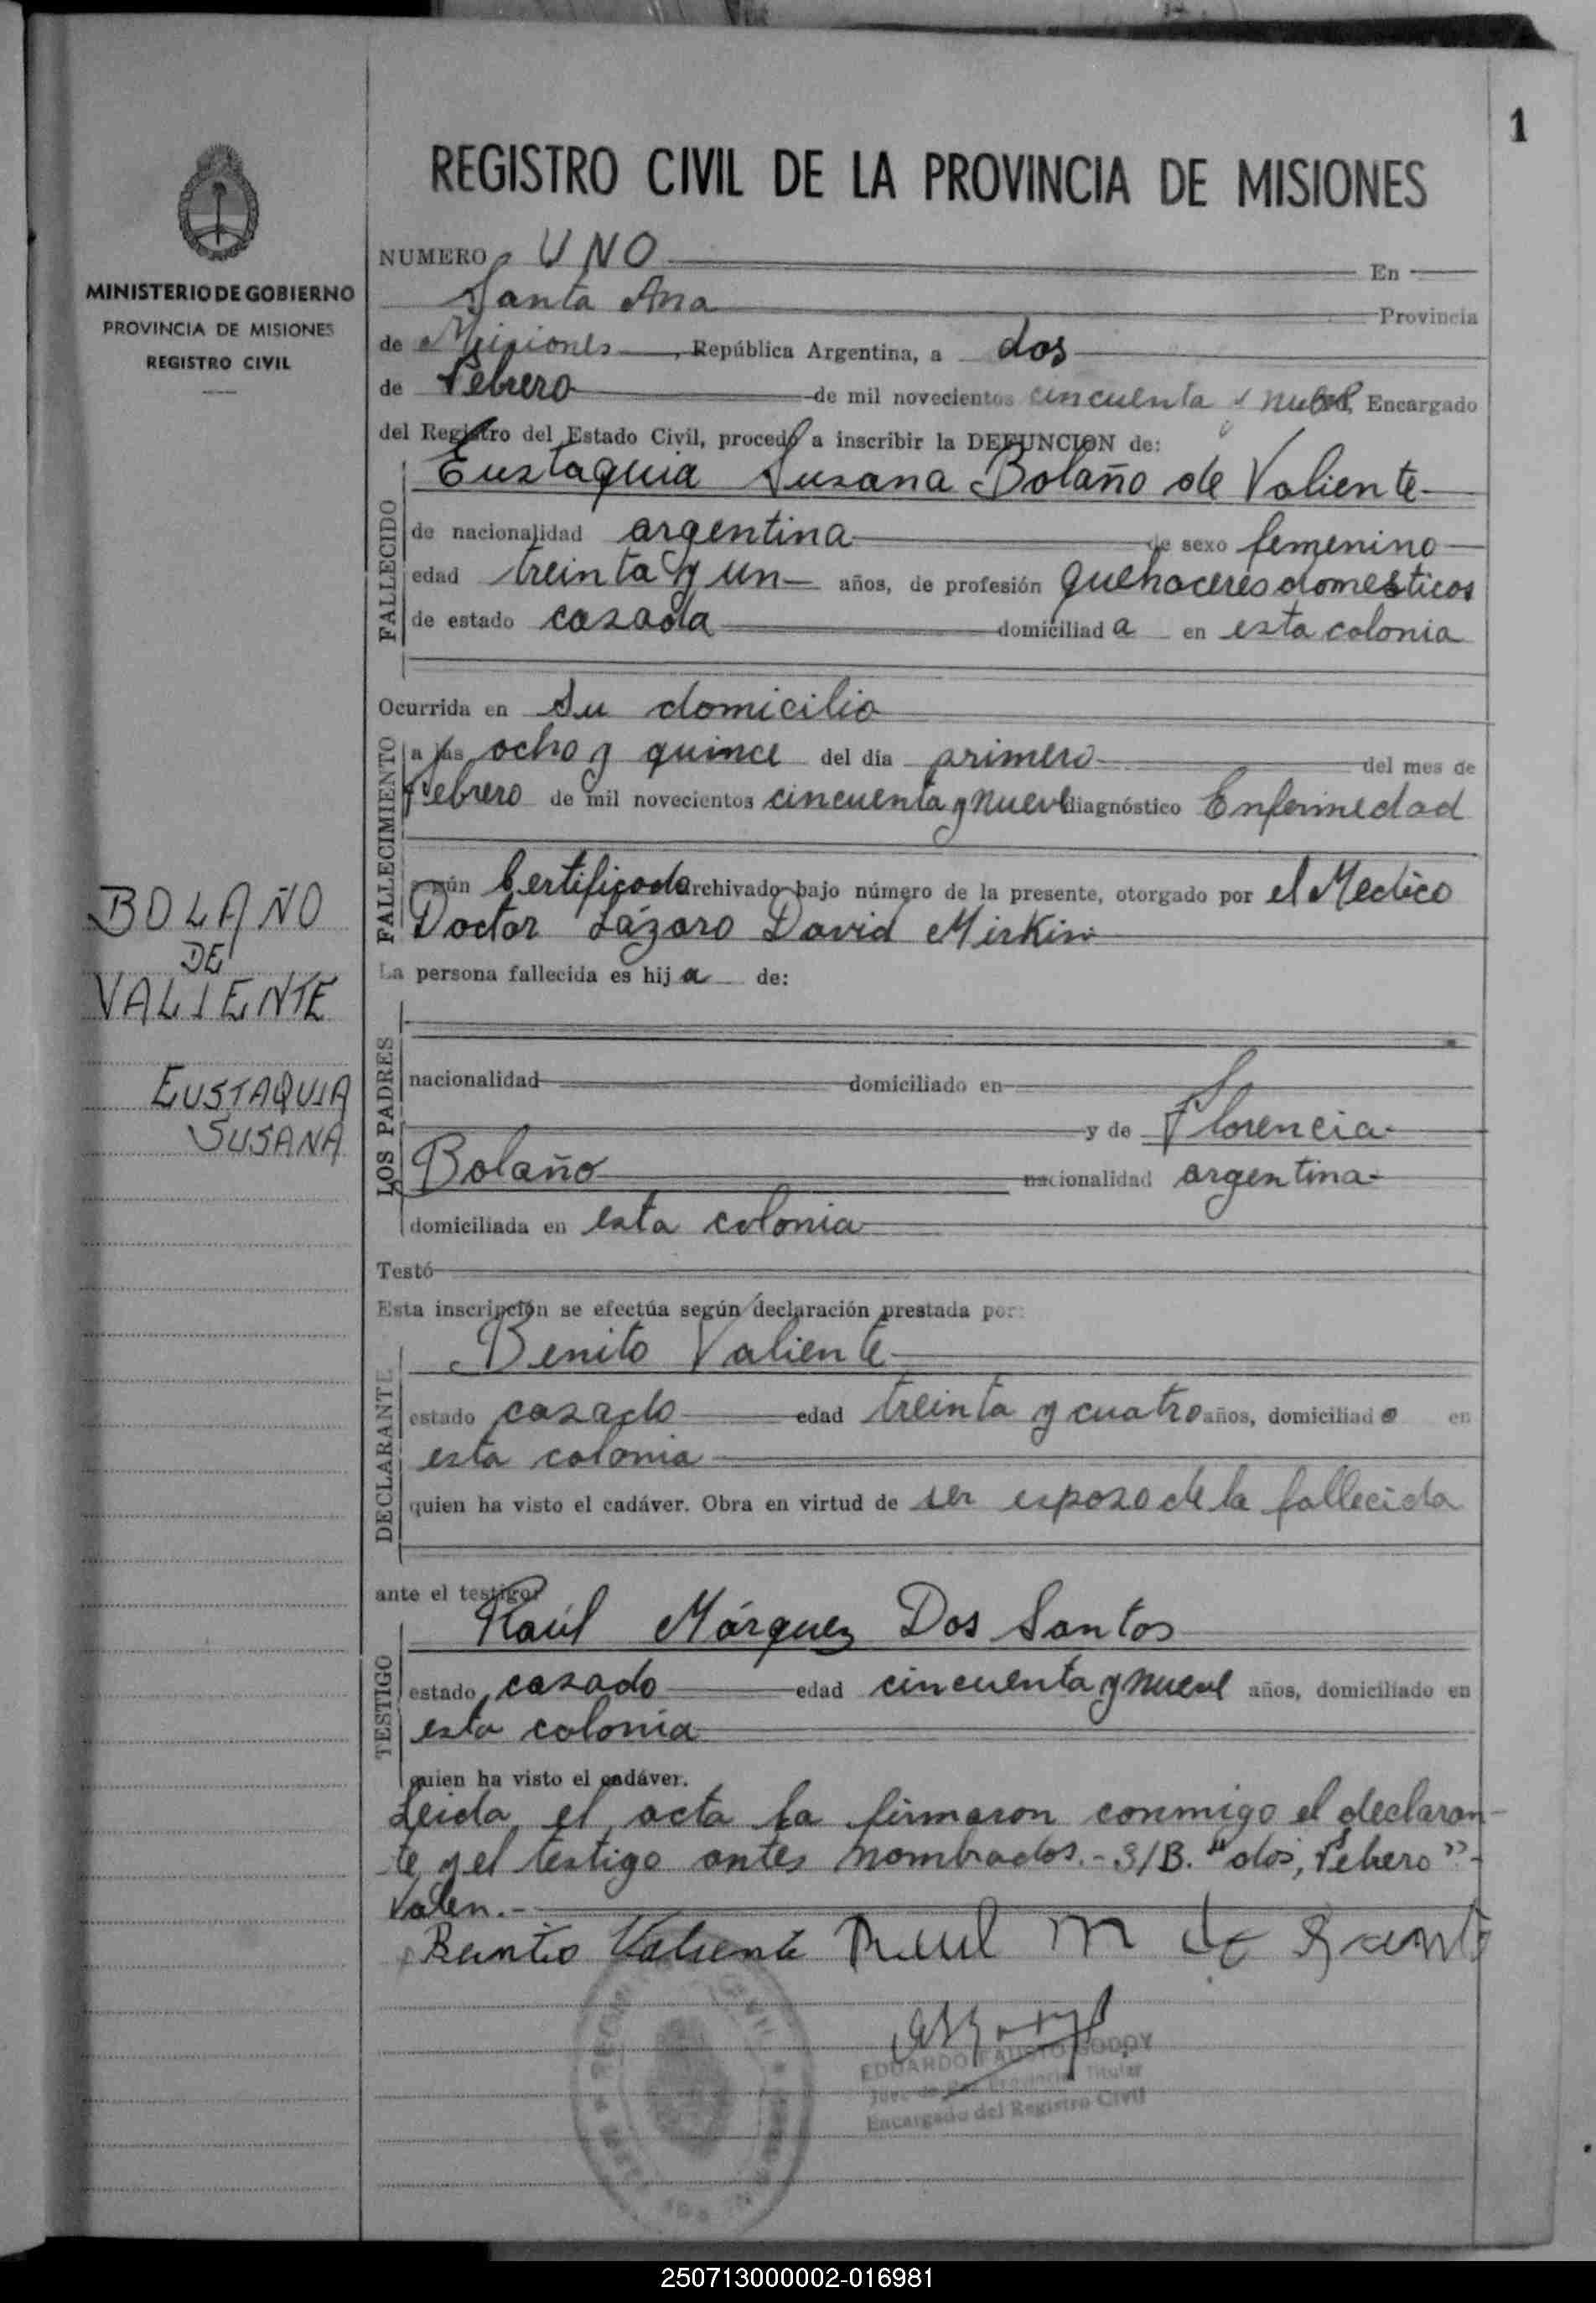 1
REGISTRO CIVIL DE LA PROVINCIA DE MISIONES
MINISTERIO DE GOBIERNO
PROVINCIA DE MISIONES
REGISTRO CIVIL
NUMERO UNO En
Santa Ana Provincia
de Misiones, República Argentina, a dos
de Febrero de mil novecientos cincuenta y nueve, Encargado
del Registro del Estado Civil, procedo a inscribir la DEFUNCION de:
FALLECIDO
Eustaquia Susana Bolaño de Valiente
de nacionalidad argentina de sexo femenino
edad treinta y un años, de profesión quehaceres domesticos
de estado casada domiciliada en esta colonia
Ocurrida en su domicilio
FALLECIMIENTO
a las ocho y quince del día primero del mes de
Febrero de mil novecientos cincuenta y nueve diagnóstico Enfermedad
según Certificado archivado bajo número de la presente, otorgado por el Medico
Doctor Lázaro David Mirkin
La persona fallecida es hija de:
BOLAÑO
DE
VALIENTE
EUSTAQUIA
SUSANA
LOS PADRES
nacionalidad domiciliado en
y de Florencia
Bolaño nacionalidad argentina
domiciliada en esta colonia
Testó
Esta inscripción se efectúa según declaración prestada por:
DECLARANTE
Benito Valiente
estado casado edad treinta y cuatro años, domiciliado en
esta colonia
quien ha visto el cadáver. Obra en virtud de ser esposo de la fallecida
ante el testigo:
TESTIGO
Raúl Márquez Dos Santos
estado casado edad cincuenta y nueve años, domiciliado en
esta colonia
quien ha visto el cadáver.
Leida el acta la firmaron conmigo el declaran-
te y el testigo antes nombrados.- S/B. "dos, Febrero"-
Valen.-
Benito Valiente Raul M
EDUARDO FAUSTO GODOY
Juez de Paz Provincial Titular
Encargado del Registro Civil
250713000002-016981